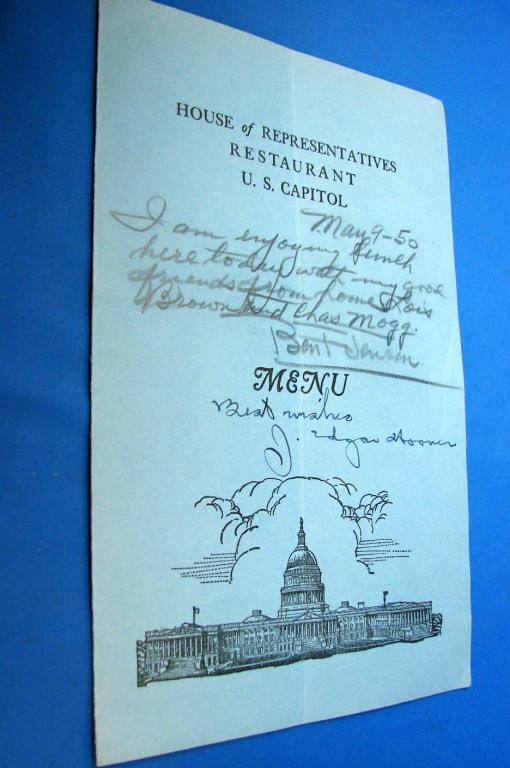 HOUSE of REPRESENTATIVES
RESTAURANT
U. S. CAPITOL
May 9-50
I am enjoying lunch
here today with my good
friends from home Lois
Brown and Chas Mogg.
Bent Jensen
MENU
Best wishes
J. Edgar Hoover